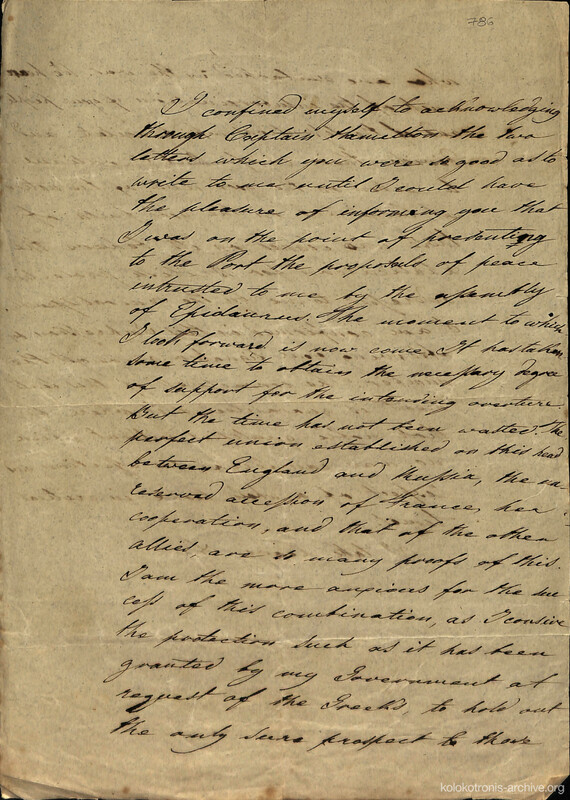 786
I confined myself to acknowledging
through Captain Hamilton the two
letters which you were so good as to
write to me until I could have
the pleasure of informing you that
I was on the point of presenting
to the Port the proposals of peace
intrusted to me by the assembly
of Epidaurus. The moment to which
I look forward is now come. It has taken
some time to obtain the necessary degree
of support for the intending overture.
But the time has not been wasted. The
perfect union established on this head
between England and Russia, the un-
reserved accession of France, her
cooperation, and that of the other
allies, are so many proofs of this.
I am the more anxious for the suc
cess of this combination, as I consive
the protection such as it has been
granted by my Government at
request of the Greeks, to hold out
the only sure prospect to those
kolokotronis-archive.org